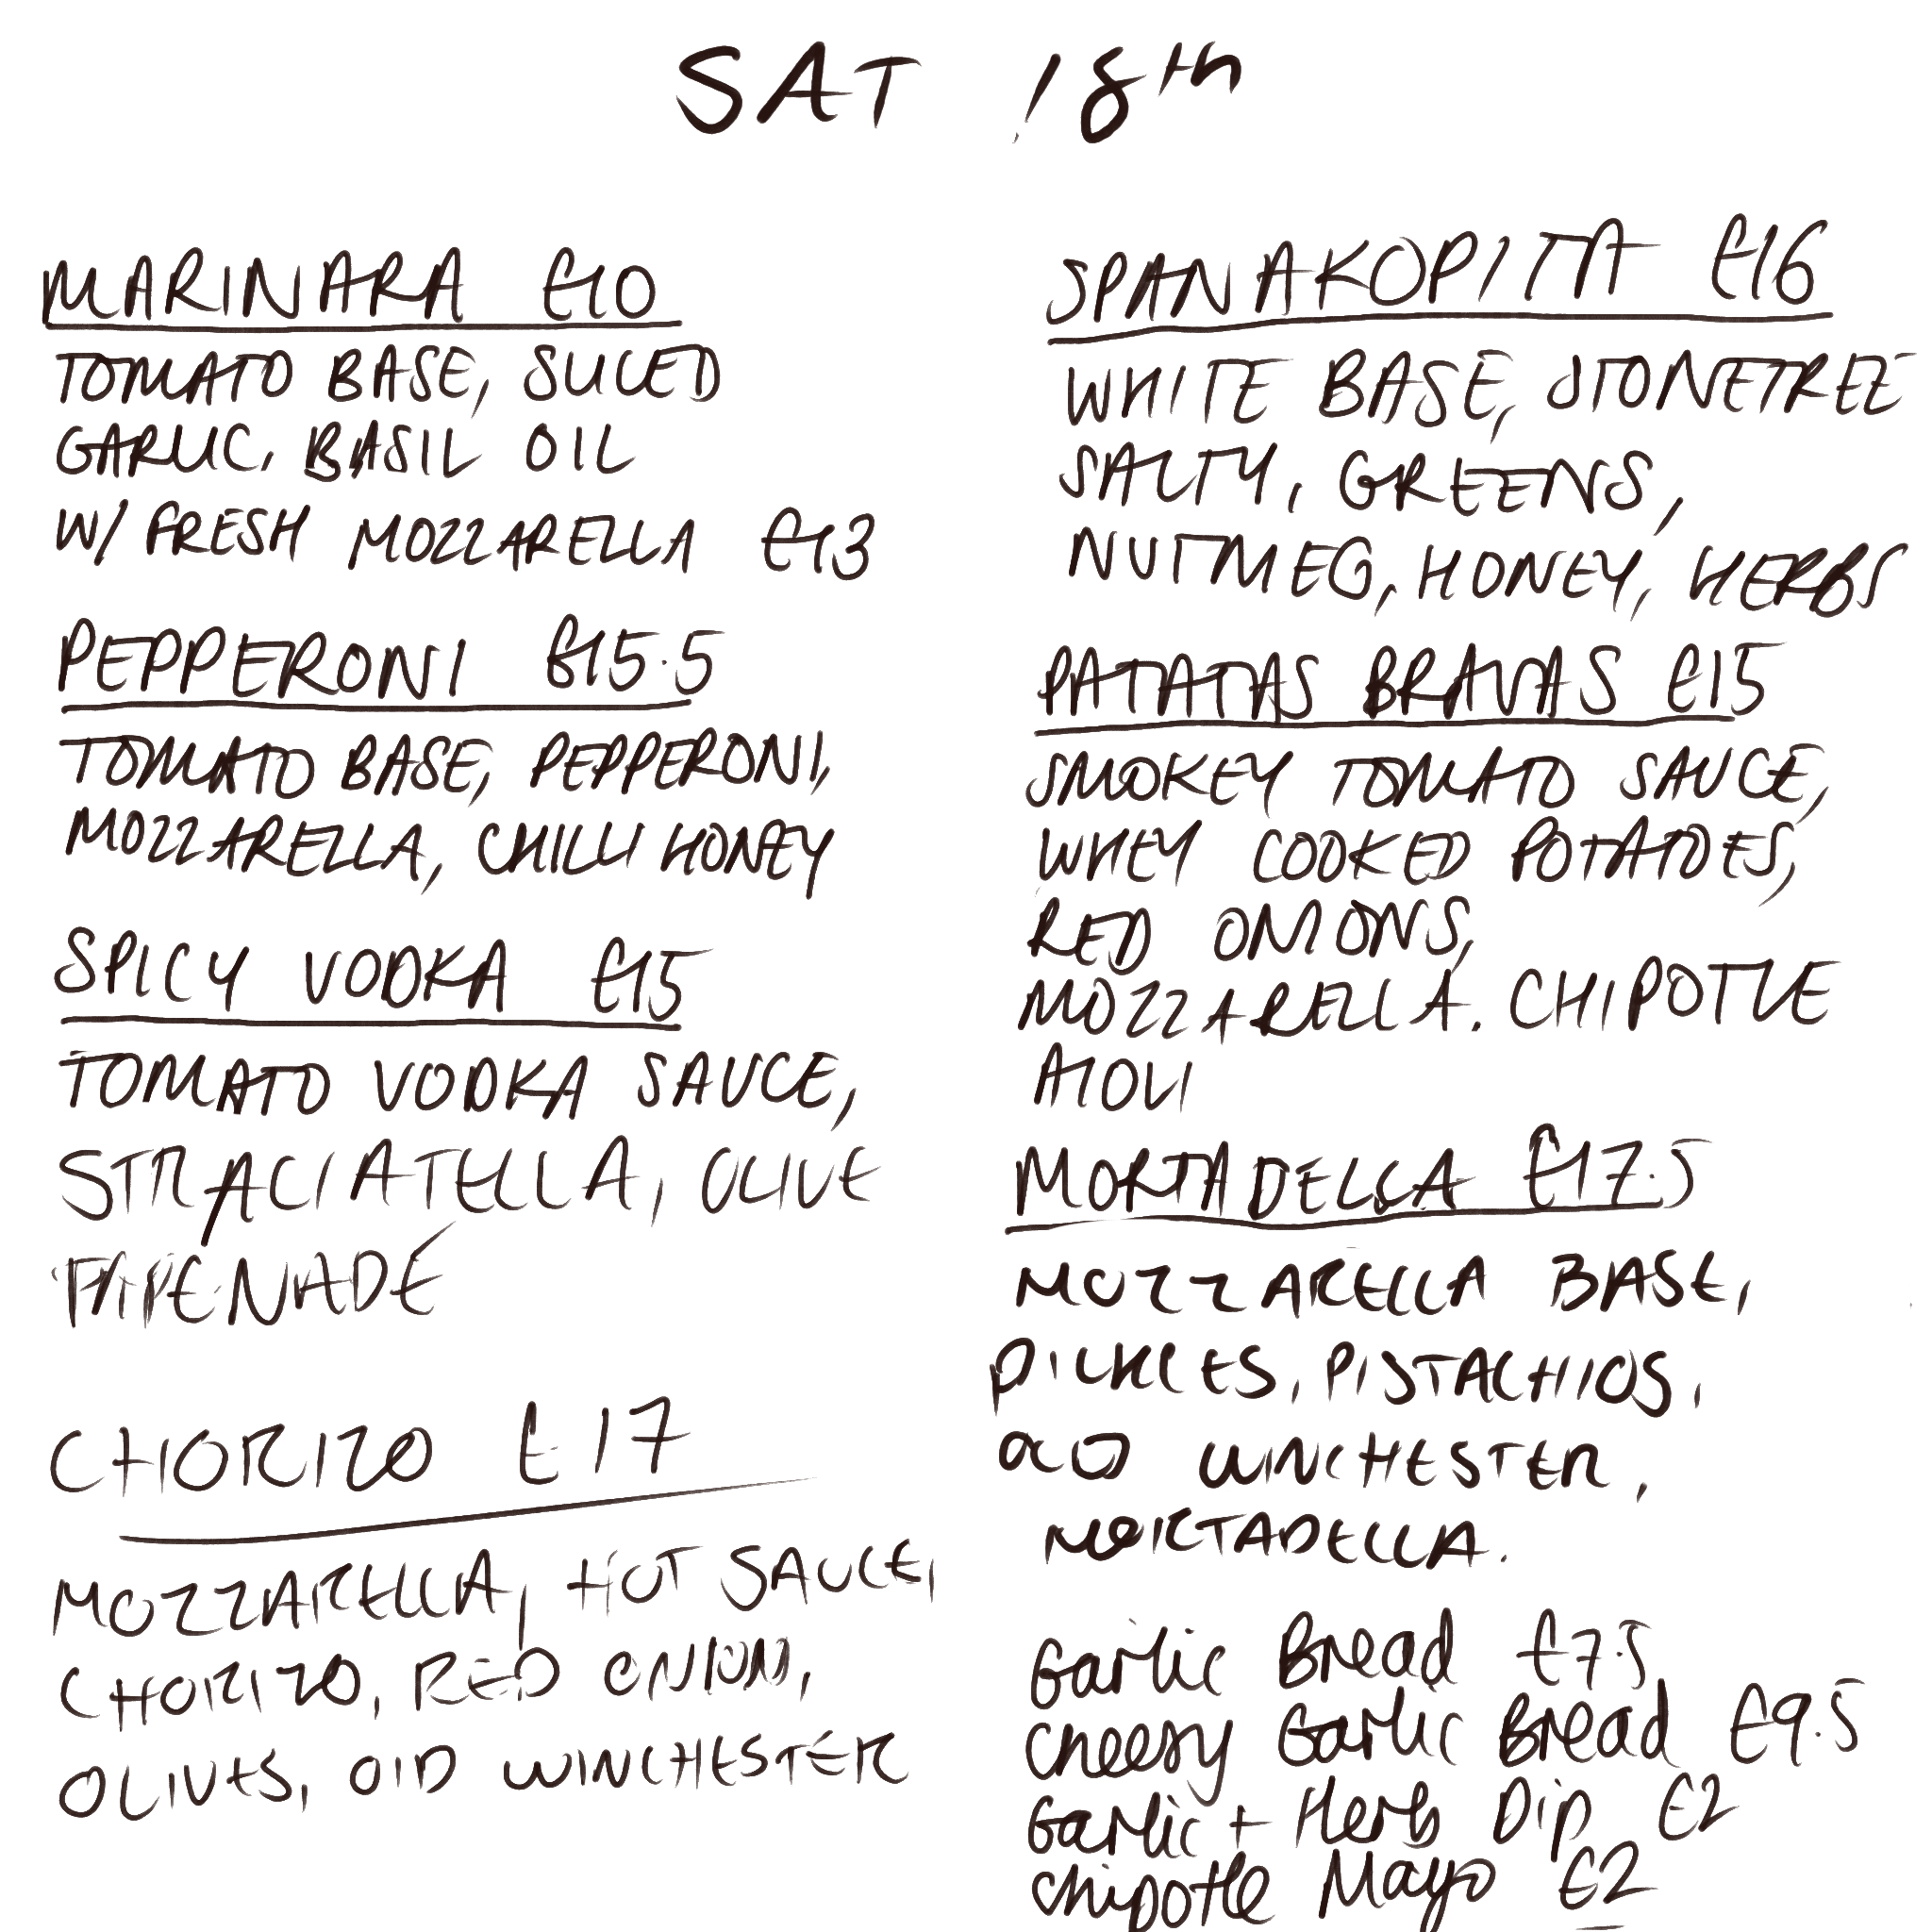 SAT 18th
MARINARA £10
TOMATO BASE, SLICED
GARLIC, BASIL OIL
W/ FRESH MOZZARELLA £13
PEPPERONI £15.5
TOMATO BASE, PEPPERONI,
MOZZARELLA, CHILLI HONEY
SPICY VODKA £15
TOMATO VODKA SAUCE,
STRACIATELLA, OLIVE
TAPENADE
CHORIZO £17
MOZZARELLA, HOT SAUCE,
CHORIZO, RED ONION,
OLIVES, OLD WINCHESTER
SPANAKOPITA £16
WHITE BASE, STONETREE
SALTY, GREENS,
NUTMEG, HONEY, HERBS
PATATAS BRAVAS £15
SMOKEY TOMATO SAUCE,
WHEY COOKED POTATOES,
RED ONIONS,
MOZZARELLA. CHIPOTLE
AIOLI
MORTADELLA £17.5
MOZZARELLA BASE,
PICKLES, PISTACHIOS,
OLD WINCHESTER,
MORTADELLA.
Garlic Bread £7.5
Cheesy Garlic Bread £9.5
Garlic + Herb Dip £2
Chipotle Mayo £2